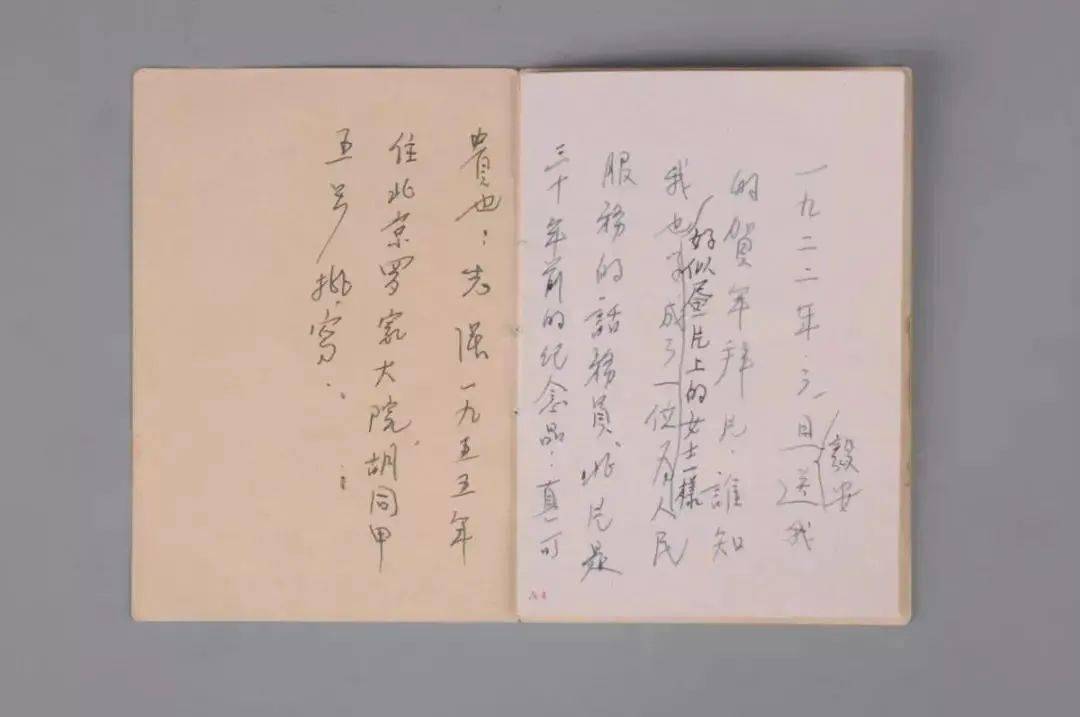 一九二二年.元旦送我
毅安
的賀年拜片.誰知
好似昼片上的女士一樣
我也成了一位为人民
服務的話務員,此片是
三十年前的纪念品:真可
貴也:志强一九五五年
住北京罗家大院,胡同甲
五号批寫.